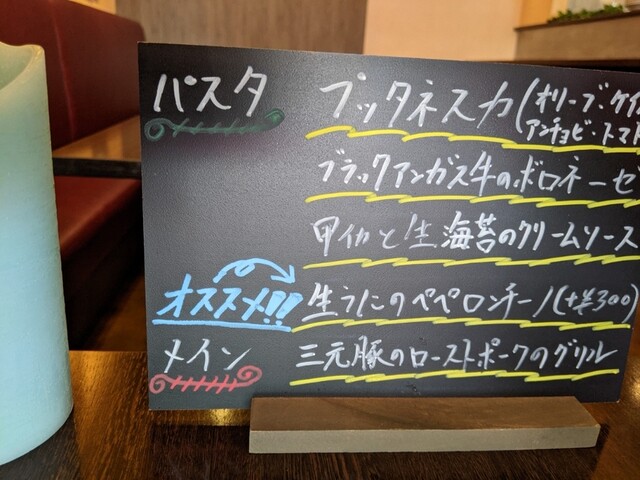 パスタ プッタネスカ(オリーブ・ケイ
アンチョビ・トマト
ブラックアンガス牛のボロネーゼ
甲イカと生海苔のクリームソース
オススメ!! 生うにのペペロンチーノ(+¥300)
メイン 三元豚のローストポークのグリル